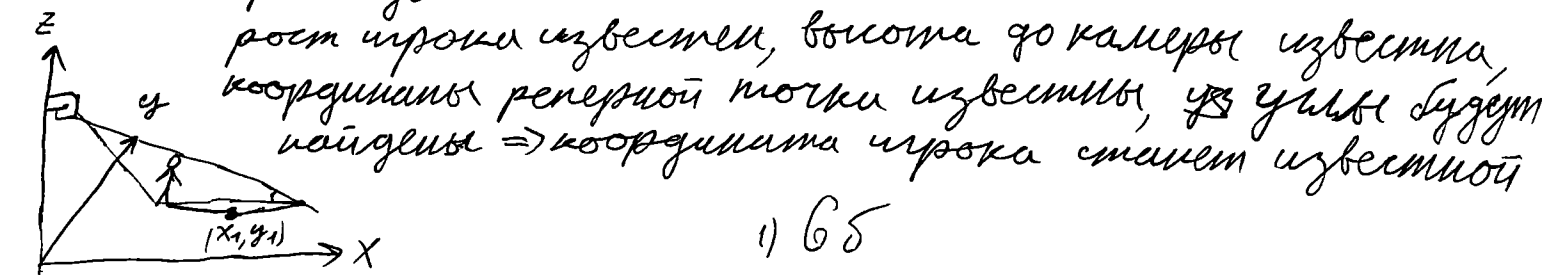 Z
рост игрока известен, высота до камеры известна,
y
координаты реперной точки известны, углы будут
найдены => координата игрока станет известной
(x1, y1)
X
1) 6б